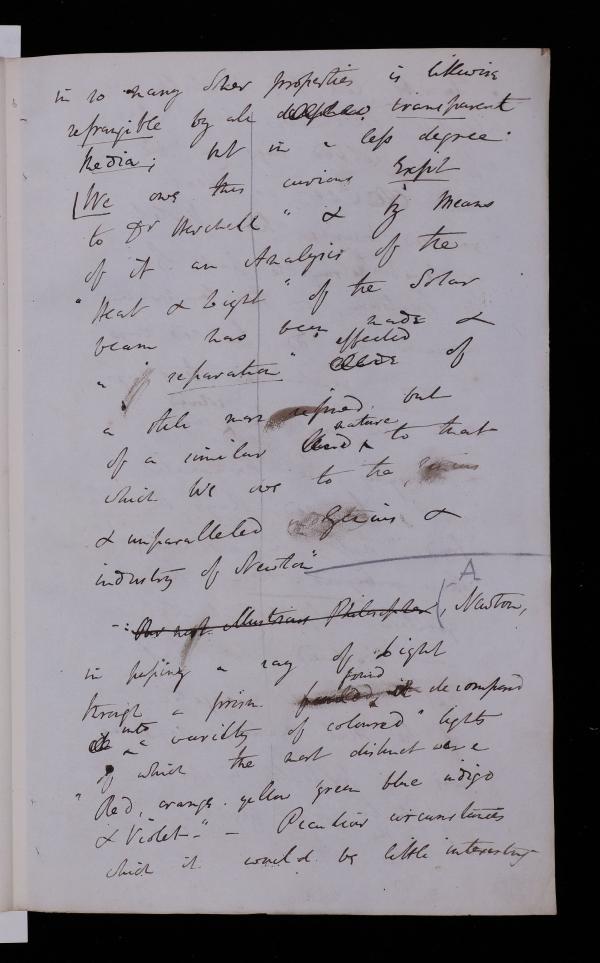 in so many other properties is likewise
refrangible by all transparent
Media; but in a less degree.
We owe this curious Expt
to Dr Herchell " & by means
of it an Analysis of the
"Heat & Light" of the Solar
beam has been made &
effected
a " separation " of
a still more refined but
nature
of a similar kind to that
which We owe to the genius
& unparalleled Genius &
industry of Newton"
A
-: Our most illustrious Philosopher (, Newton,
in passing a ray of Light
found
through a prism it decomposed
into
a variety of coloured" lights
of which the most distinct were
"Red, orange. yellow green blue indigo
& Violet-" - Peculiar circumstances
which it would be little interesting